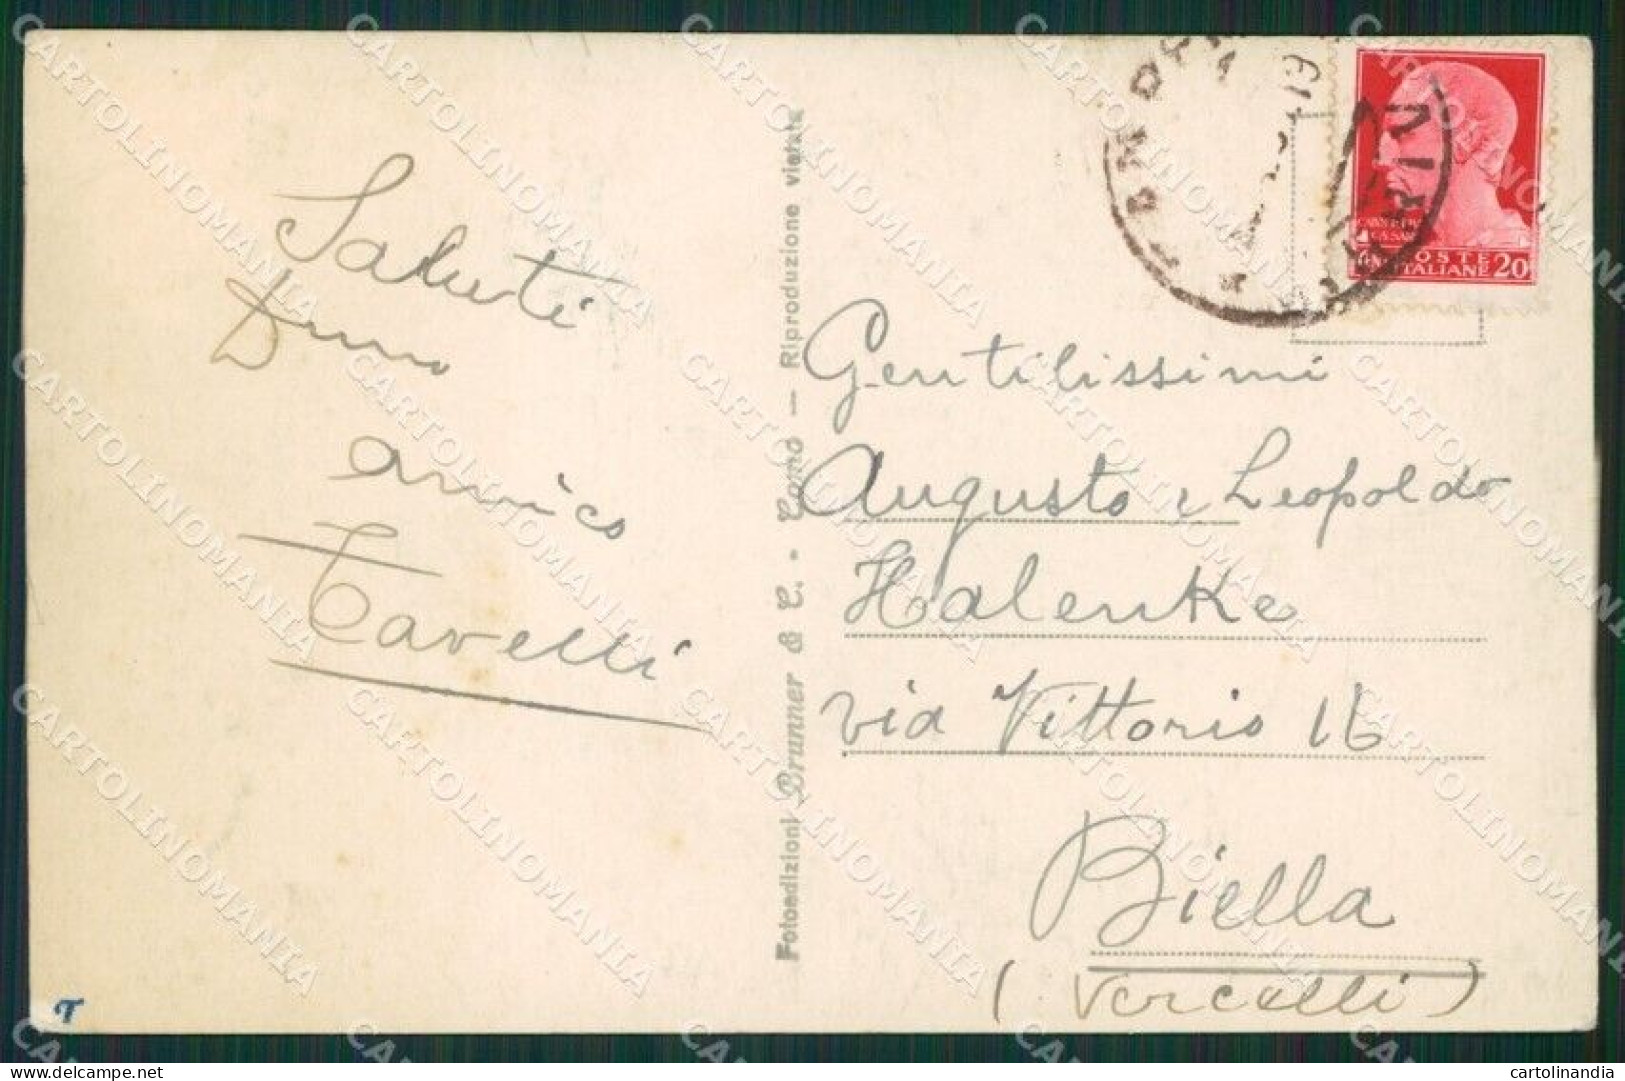 Saluti
amico
Tavelli
Fotoedizioni Brunner & C. - Como — Riproduzione vietata
Gentilissimi
Augusto e Leopoldo
Halenke
via Vittorio 16
Biella
(Vercelli)
POSTE
ITALIANE 20
T
CARTOLINOMANIA
cartolinandia